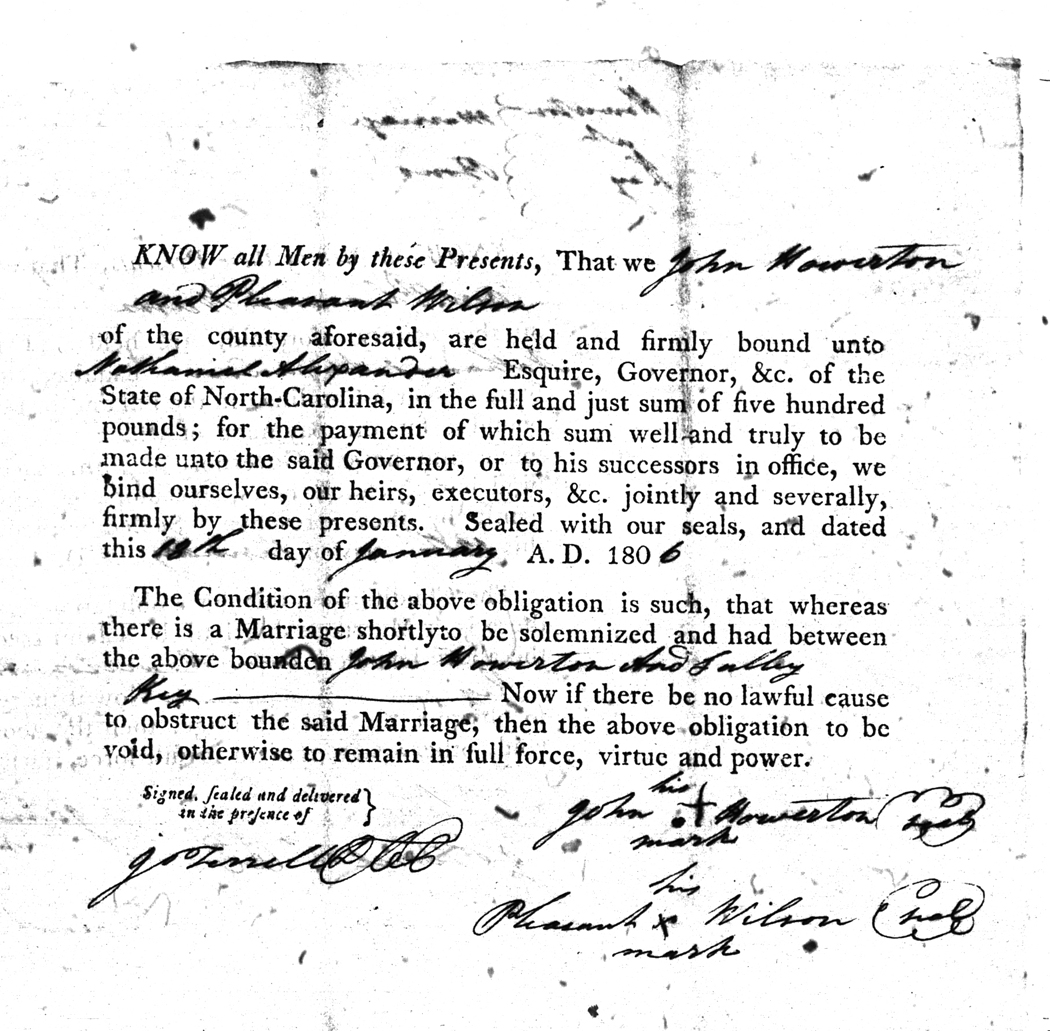 KNOW all Men by these Presents, That we John Howerton
and Pleasant Wilson
of the county aforesaid, are held and firmly bound unto
Nathaniel Alexander Esquire, Governor, &c. of the
State of North-Carolina, in the full and just sum of five hundred
pounds; for the payment of which sum well and truly to be
made unto the said Governor, or to his successors in office, we
bind ourselves, our heirs, executors, &c. jointly and severally,
firmly by these presents. Sealed with our seals, and dated
this 18th day of January A. D. 1806
The Condition of the above obligation is such, that whereas
there is a Marriage shortly to be solemnized and had between
the above bounden John Howerton And Salley
Key Now if there be no lawful cause
to obstruct the said Marriage, then the above obligation to be
void, otherwise to remain in full force, virtue and power.
Signed, sealed and delivered
in the presence of
Jo Terrell
his
John + Howerton seal
mark
his
Pleasant x Wilson seal
mark